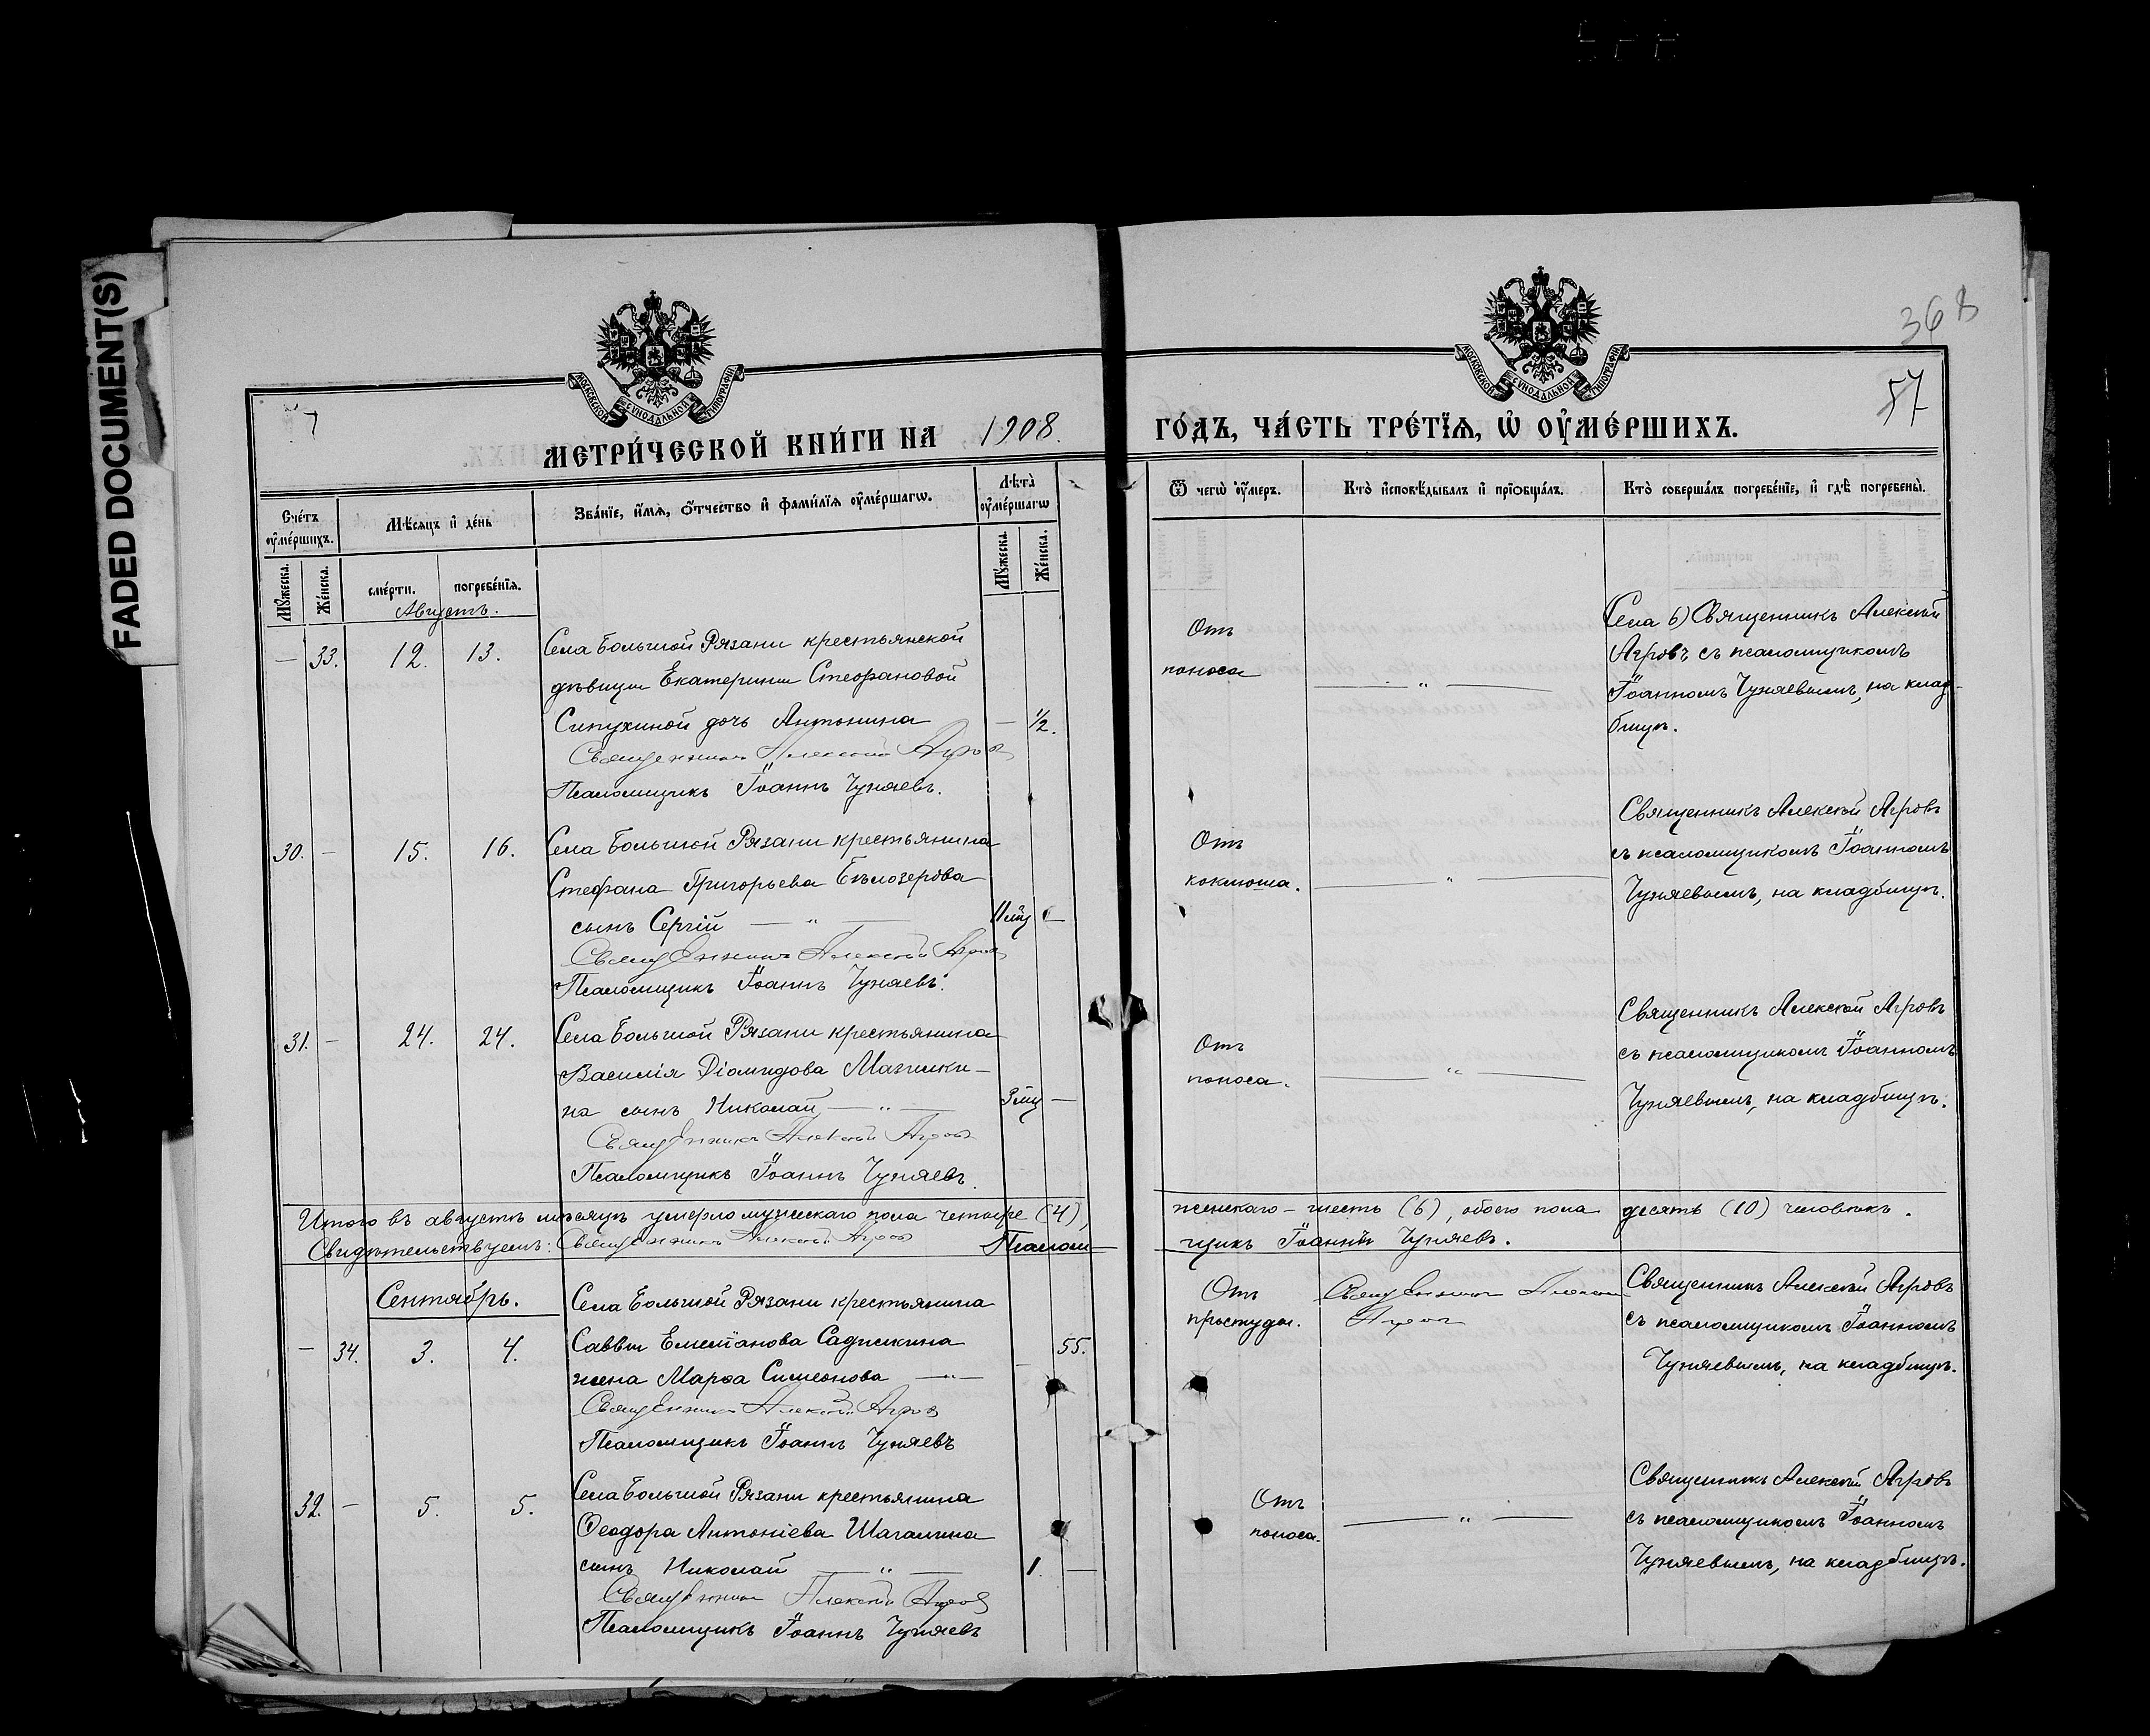 FADED DOCUMENT(S)
368
57
МОСКОВСКОЙ СУНОДАЛЬНОЙ ТИПОГРАФІИ
МОСКОВСКОЙ СУНОДАЛЬНОЙ ТИПОГРАФІИ
МЕТРИ́ЧЕСКОЙ КНИ́ГИ НА 1908. ГО́ДЪ, ЧА́СТЬ ТРЕ́ТЇѦ, Ѡ҆ ОУ҆МЕ́РШИХЪ.
Сче́тъ оу҆ме́ршихъ.
Мѣ́сяцъ и҆ де́нь
Зва́нїе, и҆́мѧ, ѻ҆́тчество и҆ фами́лїѧ оу҆ме́ршагѡ.
Лѣ́та̀ оу҆ме́ршагѡ
Ѿ чегѡ̀ оу҆́меръ.
Кто̀ и҆сповѣ́дывалъ и҆ прїобща́лъ.
Кто̀ соверша́лъ погребе́нїе, и҆ гдѣ̀ погребены̀.
Мꙋ́жеска.
Же́нска.
сме́рти.
погребе́нїѧ.
Мꙋ́жеска.
Же́нска.
Августъ.
— 33. 12. 13.
Села Большой Рязани крестьянской
дѣвицы Екатерины Стефановой
Сипухиной дочь Антонина — 1/2.
Священникъ Алексѣй Агровъ
Псаломщикъ Іоаннъ Чуняевъ.
Отъ
поноса
— " —
Села б) Священникъ Алексѣй
Агровъ съ псаломщикомъ
Іоанномъ Чуняевымъ, на клад-
бищѣ.
30. — 15. 16.
Села Большой Рязани крестьянина
Стефана Григорьева Бѣлозерова
сынъ Сергій — " — 11 мѣц —
Священникъ Алексѣй Агровъ
Псаломщикъ Іоаннъ Чуняевъ.
Отъ
коклюша.
— " —
Священникъ Алексѣй Агровъ
съ псаломщикомъ Іоанномъ
Чуняевымъ, на кладбищѣ.
31. — 24. 24.
Села Большой Рязани крестьянина
Василія Діомидова
на сынъ Николай — " — 3 мц —
Священникъ Алексѣй Агровъ
Псаломщикъ Іоаннъ Чуняевъ.
Отъ
поноса.
— " —
Священникъ Алексѣй Агровъ
съ псаломщикомъ Іоанномъ
Чуняевымъ, на кладбищѣ.
Итого въ августѣ мѣсяцѣ умерло мужескаго пола четыре (4), женскаго — шесть (6), обоего пола десять (10) человѣкъ.
Свидѣтельствуемъ: Священникъ Алексѣй Агровъ Псалом-
щикъ Іоаннъ Чуняевъ.
Сентябрь.
— 34. 3. 4.
Села Большой Рязани крестьянина
Саввы Емеліанова Садилкина — 55.
жена Марѳа Симеонова — " —
Священникъ Алексѣй Агровъ
Псаломщикъ Іоаннъ Чуняевъ
Отъ
простуды.
Священникъ Алексѣй
Агровъ
Священникъ Алексѣй Агровъ
съ псаломщикомъ Іоанномъ
Чуняевымъ, на кладбищѣ.
32. — 5. 5.
Села Большой Рязани крестьянина
Ѳеодора Антоніева Шагалина
сынъ Николай — " — 1. —
Священникъ Алексѣй Агровъ
Псаломщикъ Іоаннъ Чуняевъ
Отъ
поноса.
— " —
Священникъ Алексѣй Агровъ
съ псаломщикомъ Іоанномъ
Чуняевымъ, на кладбищѣ.